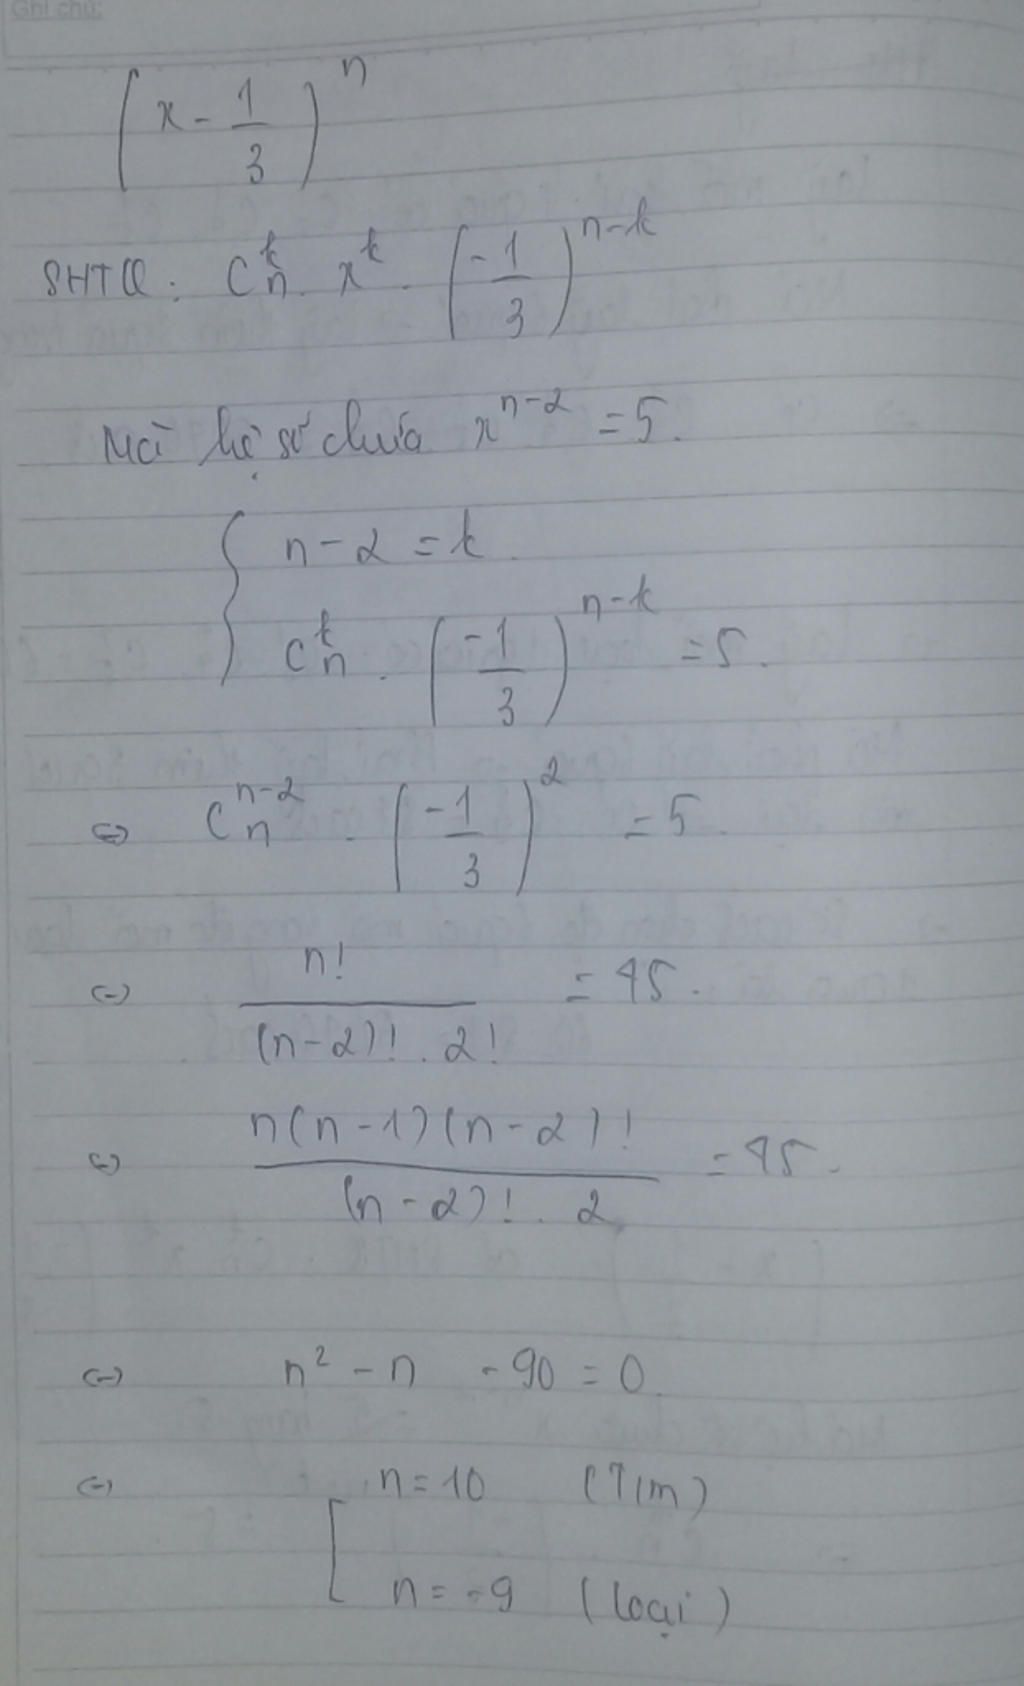 Ghi chú:
(x - 1/3)^n
SHTQ: C_n^k . x^k . (-1/3)^(n-k)
Mà hệ số chứa x^(n-2) = 5.
{ n - 2 = k.
C_n^k . (-1/3)^(n-k) = 5.
<=> C_n^(n-2) . (-1/3)^2 = 5.
<=> n! / (n-2)! . 2! = 45.
<=> n(n-1)(n-2)! / (n-2)! . 2 = 45.
<=> n² - n - 90 = 0.
<=> [ n = 10 (T/m)
n = -9 (loại)